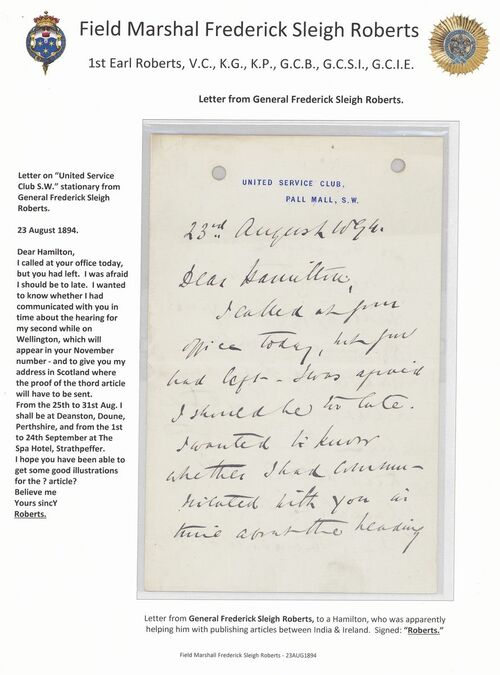 Field Marshal Frederick Sleigh Roberts
1st Earl Roberts, V.C., K.G., K.P., G.C.B., G.C.S.I., G.C.I.E.
Letter from General Frederick Sleigh Roberts.
Letter on “United Service
Club S.W.” stationary from
General Frederick Sleigh
Roberts.
23 August 1894.
Dear Hamilton,
I called at your office today,
but you had left.  I was afraid
I should be to late.  I wanted
to know whether I had
communicated with you in
time about the hearing for
my second while on
Wellington, which will
appear in your November
number - and to give you my
address in Scotland where
the proof of the third article
will have to be sent.
From the 25th to 31st Aug. I
shall be at Deanston, Doune,
Perthshire, and from the 1st
to 24th September at The
Spa Hotel, Strathpeffer.
I hope you have been able to
get some good illustrations
for the ? article?
Believe me
Yours sincY
Roberts.
UNITED SERVICE CLUB,
PALL MALL, S.W.
23rd August 1894.
Dear Hamilton,
I called at your
office today, but you
had left - I was afraid
I should be too late.
I wanted to know
whether I had commu-
nicated with you in
time about the heading
Letter from General Frederick Sleigh Roberts, to a Hamilton, who was apparently
helping him with publishing articles between India & Ireland.  Signed: “Roberts.”
Field Marshall Frederick Sleigh Roberts - 23AUG1894